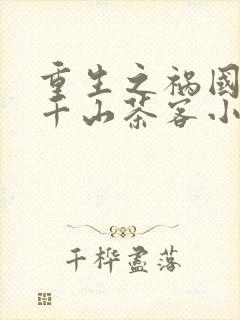 重生之祸國
千山茶客小
千桦盡落